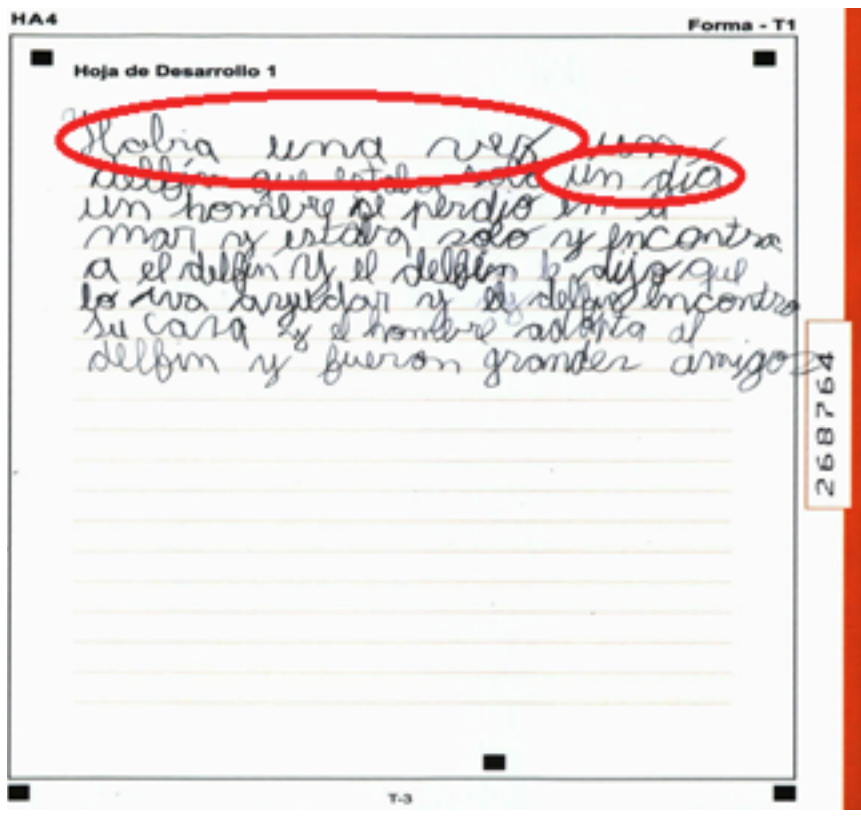 HA4
Forma - T1
Hoja de Desarrollo 1
Habia una vez un
delfin que estaba solo un día
un hombre se perdio en a
mar y estaba solo y encontra
a el delfin y el delfin le dijo que
lo iva ayudar y el delfin encontro
su casa y el hombre adopta al
delfin y fueron grandes amigos
268764
T-3